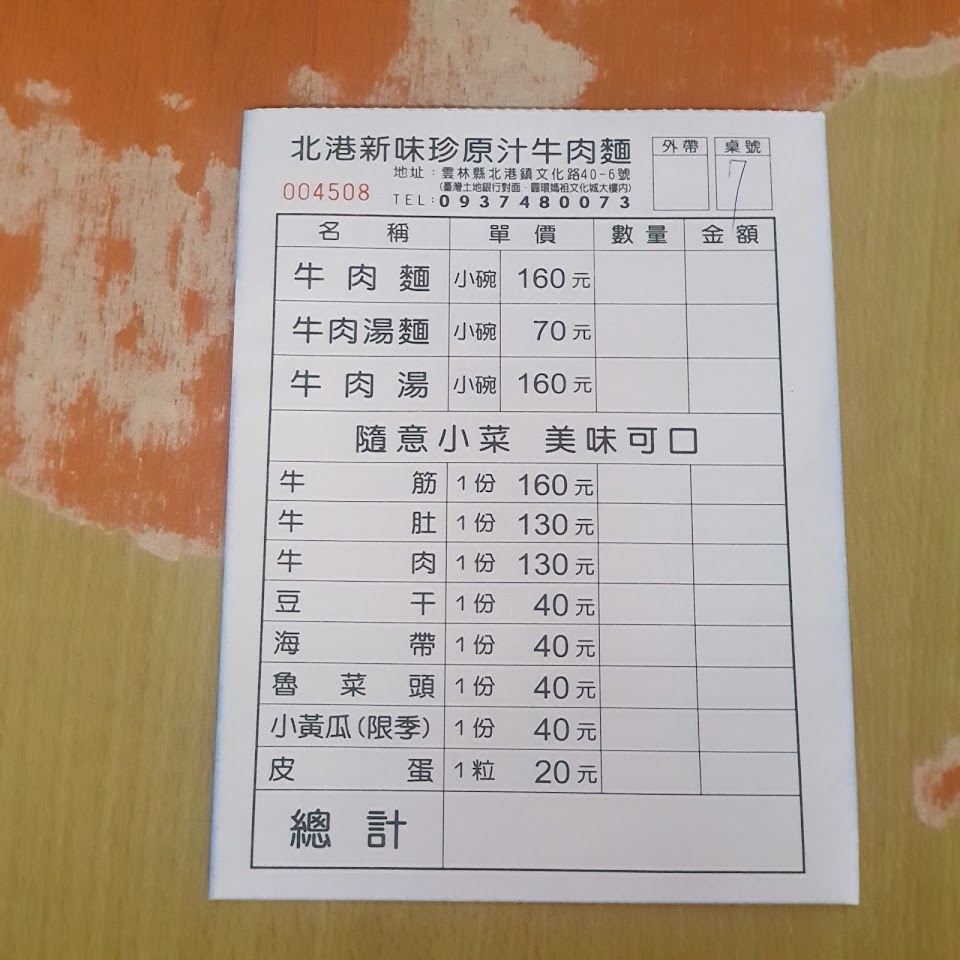 北港新味珍原汁牛肉麵
外帶 桌號
7
地址：雲林縣北港鎮文化路40-6號
(臺灣土地銀行對面．圓環媽祖文化城大樓內)
004508 TEL:0937480073
名稱 單價 數量 金額
牛肉麵 小碗 160元
牛肉湯麵 小碗 70元
牛肉湯 小碗 160元
隨意小菜 美味可口
牛筋 1份 160元
牛肚 1份 130元
牛肉 1份 130元
豆干 1份 40元
海帶 1份 40元
魯菜頭 1份 40元
小黃瓜(限季) 1份 40元
皮蛋 1粒 20元
總計